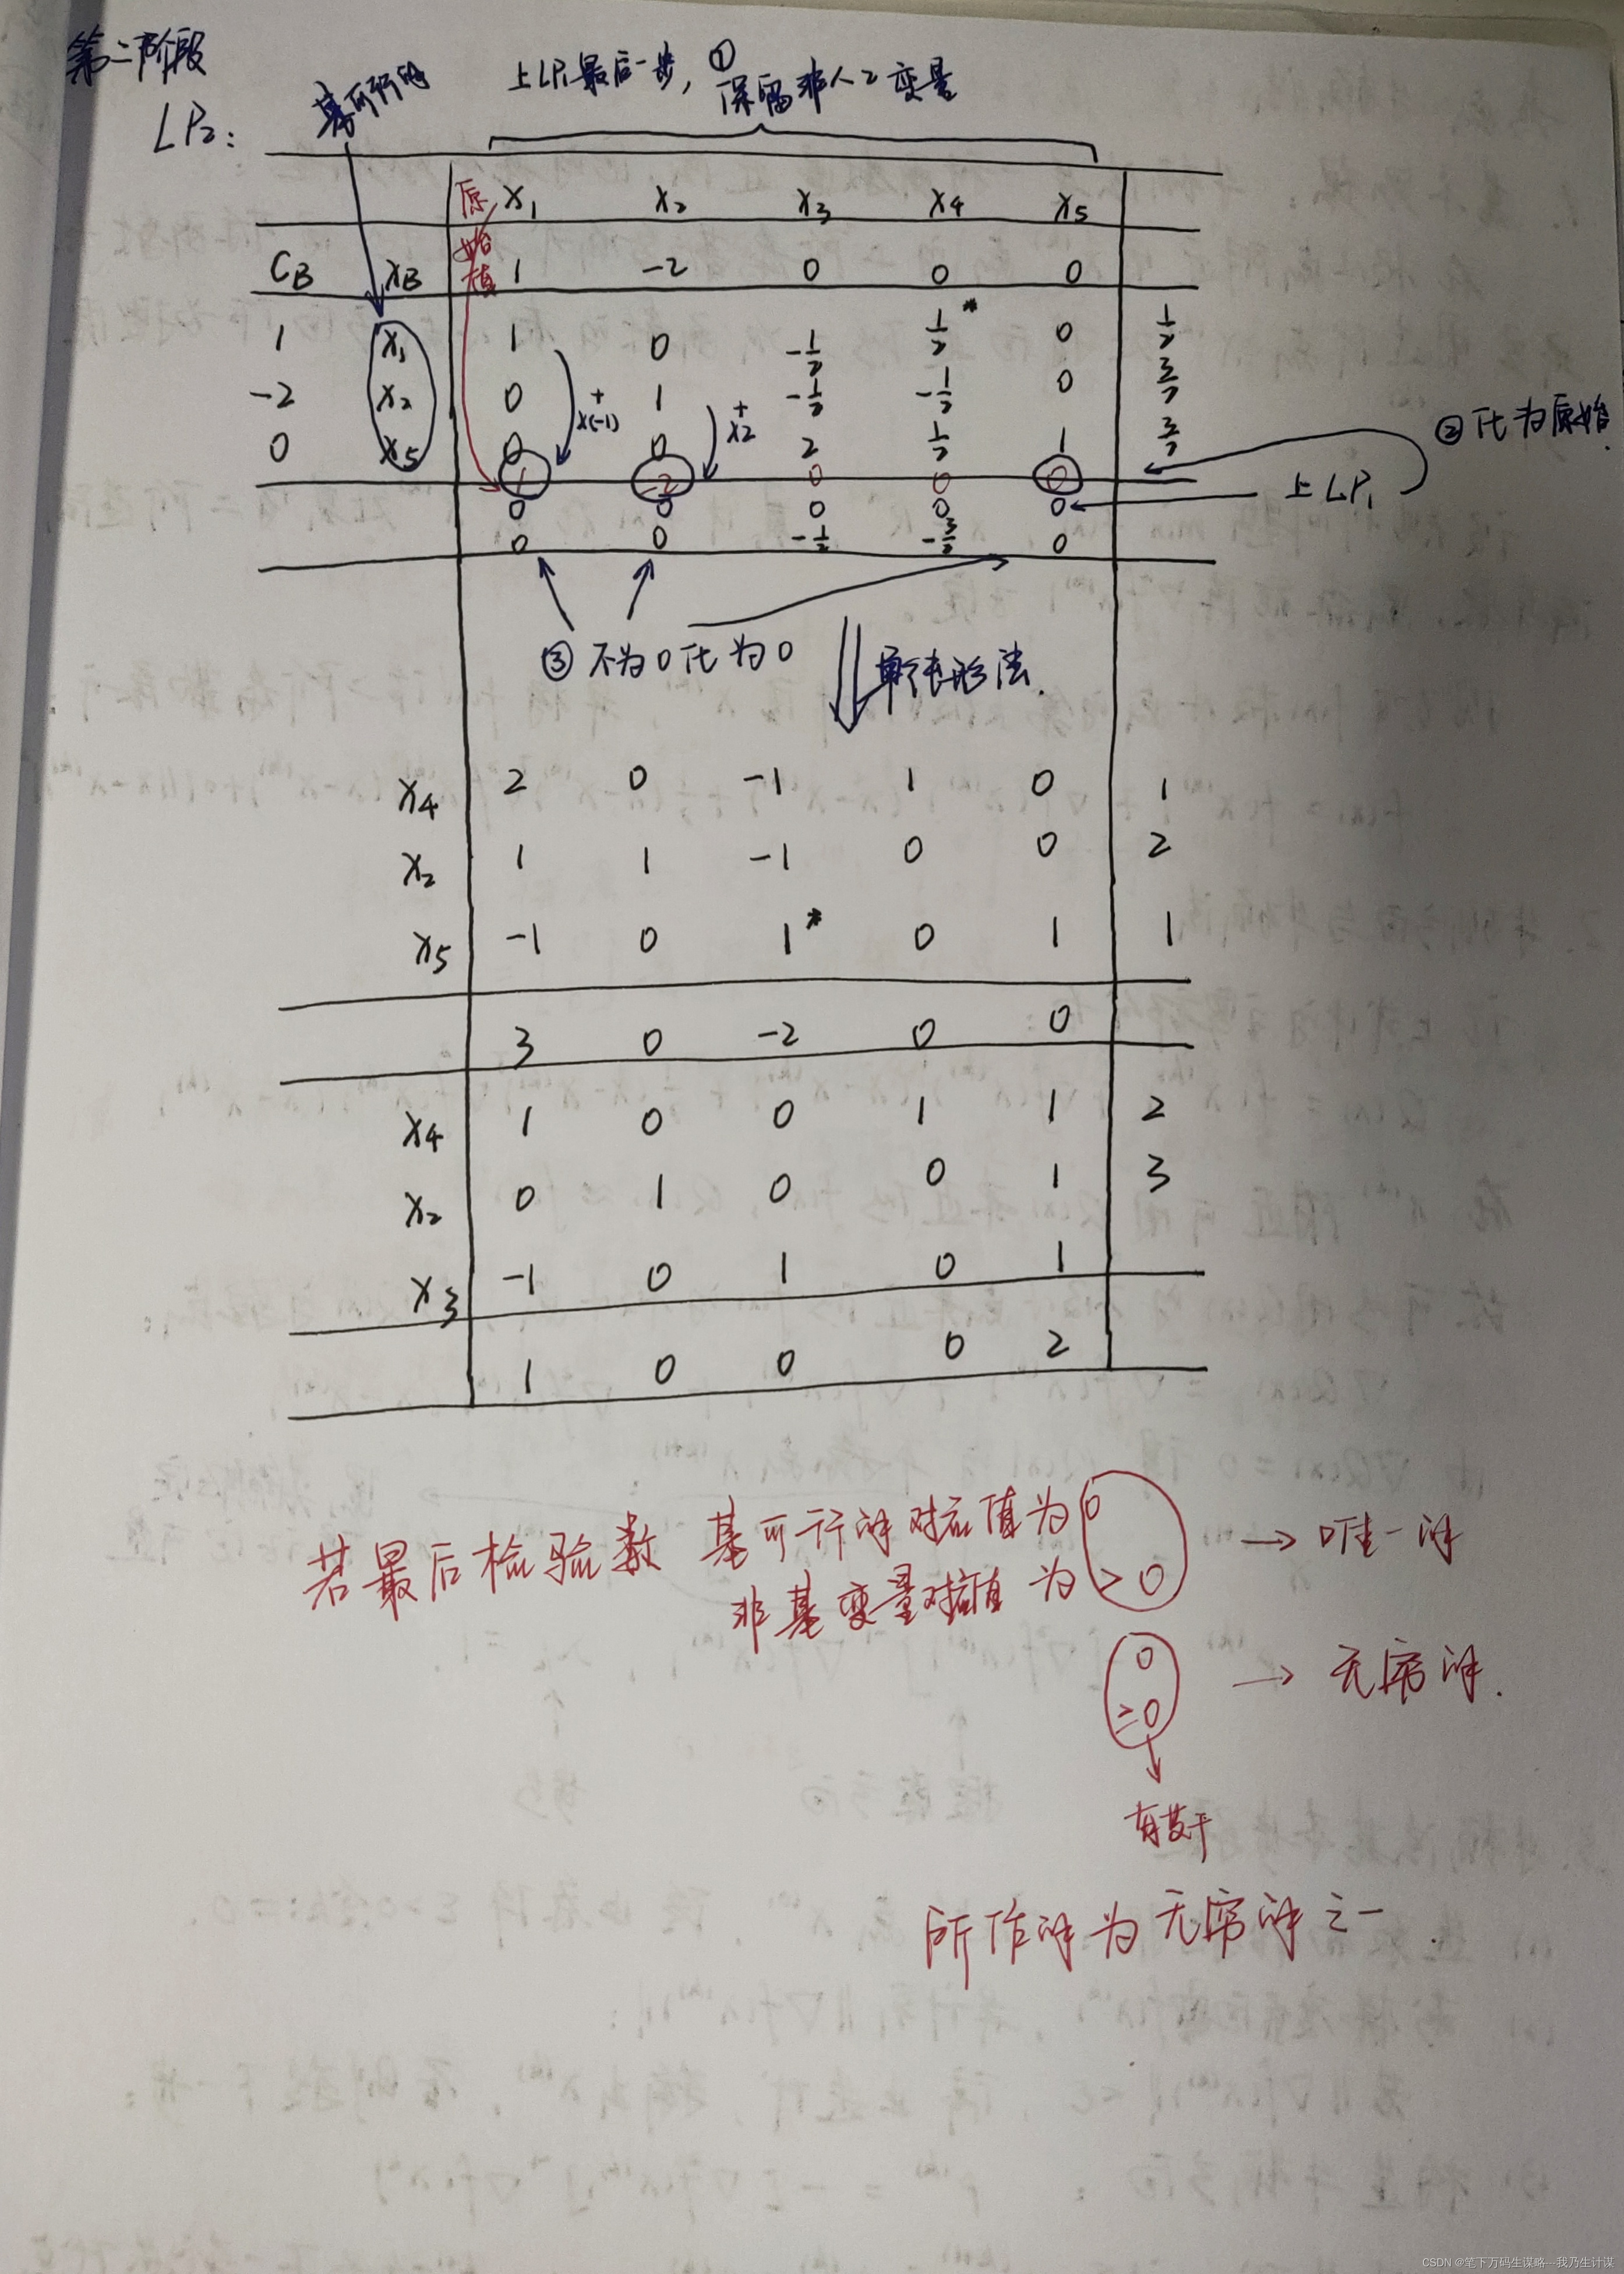 第二阶段
LP₂:
基可行解
上LP₁最后一步, ① 保留非人工变量
原始值
x₁ x₂ x₃ x₄ x₅
C_B X_B 1 -2 0 0 0
1 x₁ 1 0 -1/2 1/2* 0 1/2
-2 x₂ 0 1 -1/2 -1/2 0 3/2
0 x₅ 0 0 2 1/2 1 3/2
+ x(-1)
+ x2
1 -2 0 0 0
② 化为原始
0 0 0 0 0 上LP₁
0 0 -1/2 -3/2 0
③ 不为0化为0
单纯形法.
x₄ 2 0 -1 1 0 1
x₂ 1 1 -1 0 0 2
x₅ -1 0 1* 0 1 1
3 0 -2 0 0
x₄ 1 0 0 1 1 2
x₂ 0 1 0 0 1 3
x₃ -1 0 1 0 1
1 0 0 0 2
若最后检验数 基可行解对应值为 0
非基变量对应值为 >0 → 唯一解
0
≥0 → 无穷解.
有若干
所作解为无穷解之一.
CSDN @笔下万码生谋略---我乃生计谋